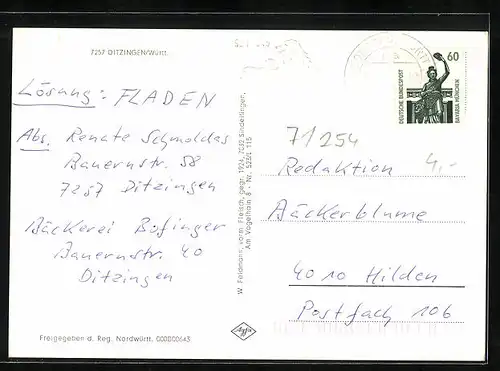 7257 DITZINGEN/Württ.
Lösung: FLADEN
Abs. Renate Schmoldas
Bauernstr. 58
7257 Ditzingen
Bäckerei Bofinger
Bauernstr. 40
Ditzingen
Freigegeben d. Reg. Nordwürtt. 000B00643
W. Feldmann, vorm. Fleisch, gegr. 1924, 7032 Sindelfingen,
Am Vogelhain 8 - Nr. 523/1 115
Agfa
60
DEUTSCHE BUNDESPOST
BAVARIA MÜNCHEN
71254
4,-
Redaktion
Bäckerblume
4010 Hilden
Postfach 106